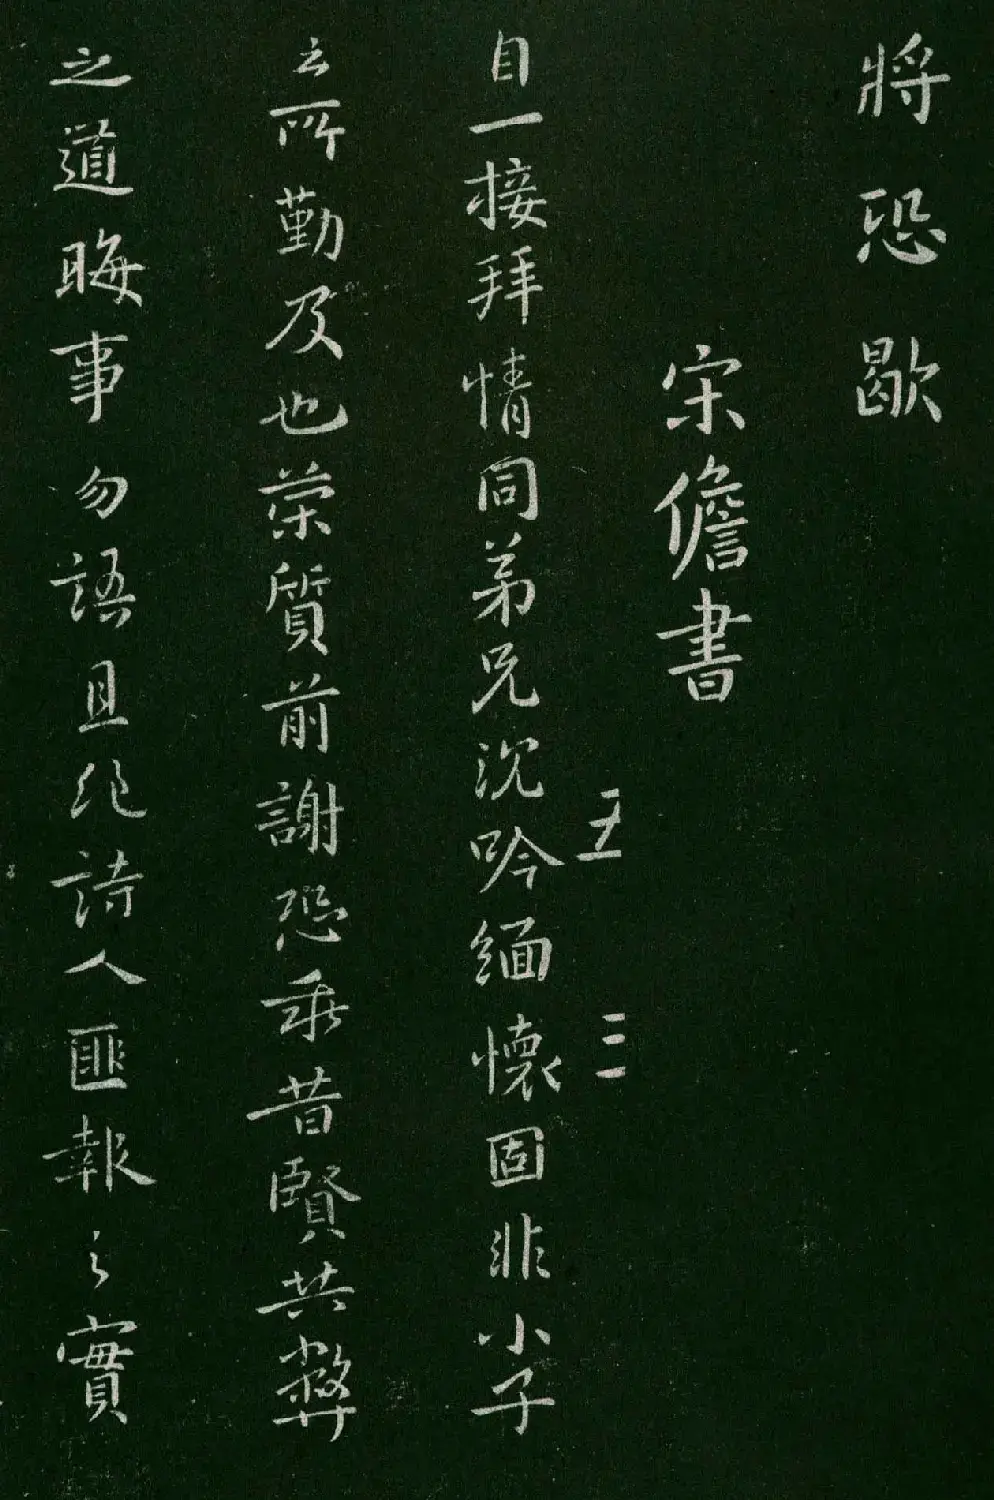 將恐歇
宋儋書
五 三
自一接拜情同弟兄沉吟緬懷固非小子
云所勤及也榮質前謝恐乖昔賢共弊
之道晦事勿語且絕詩人匪報之實